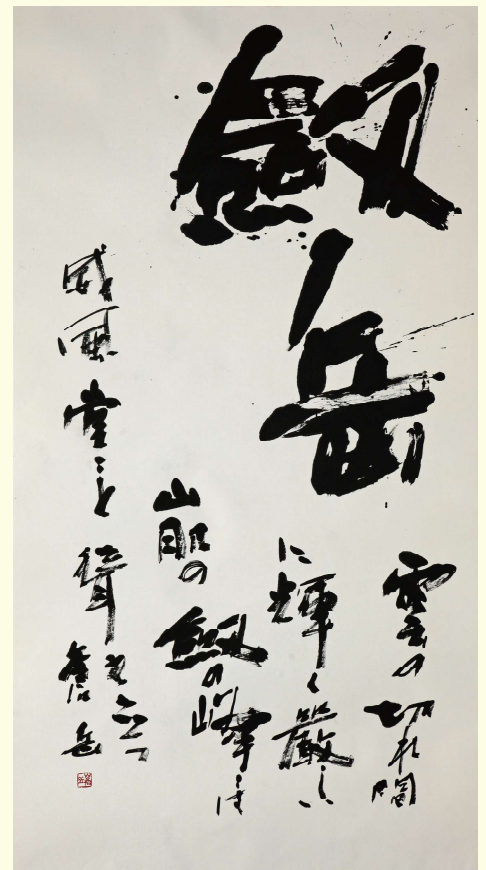 劔岳
雲の切れ間
に輝く厳しい
山肌の劔の峰々は
威風堂々と聳え立つ